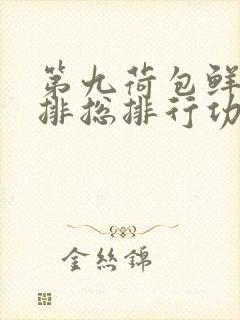 第九荷包鲜
排总排行功
金丝锦